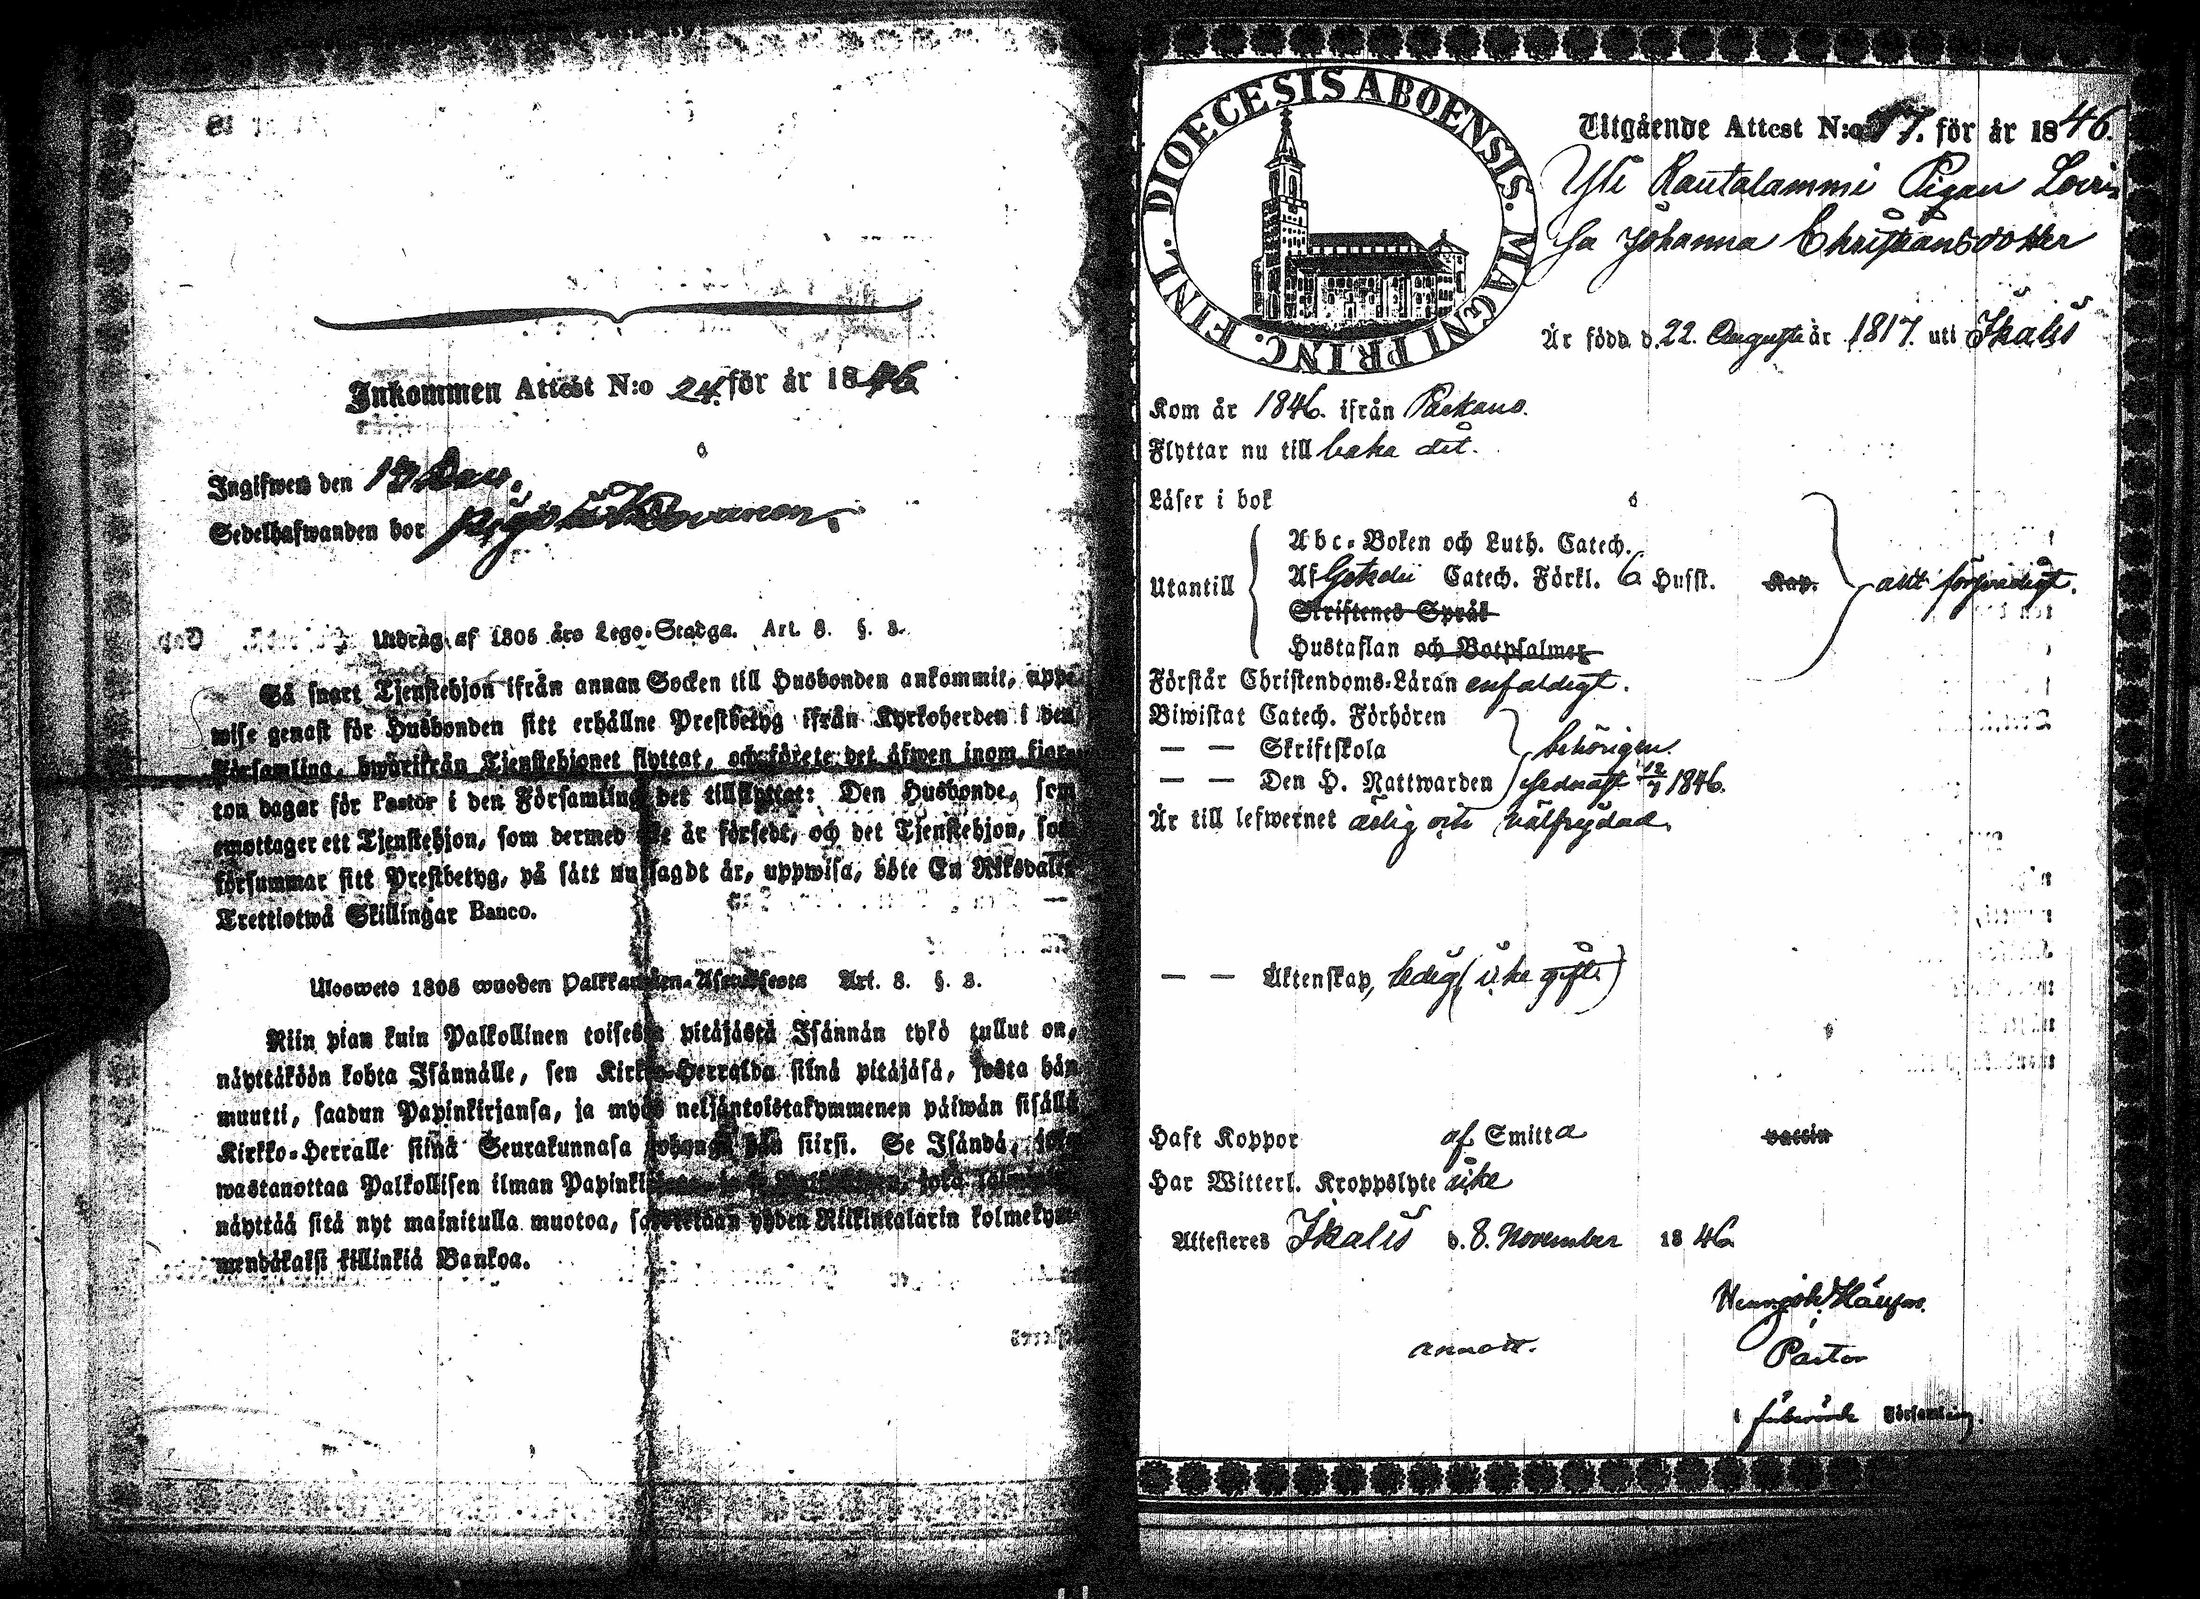 Inkommen Attest N:o 24. för år 1846
Ingifwen den
Sedelhafwanden bor
Utdrag af 1805 års Lego-Stadga. Art. 8. §. 3.
Så snart Tjenstehjon ifrån annan Socken till Husbonden ankommit, uppe
wise genast för Husbonden sitt erhållne Prestbetyg ifrån Kyrkoherden i den
Församling, hwarifrån Tjenstehjonet flyttat, och förete det äfwen inom fjor-
ton dagar för Pastor i den Församling det tillflyttat: Den Husbonde, som
emottager ett Tjenstehjon, som dermed är försedt, och det Tjenstehjon, som
försummar sitt Prestbetyg, på sätt nu sagdt är, uppwisa, böte En Riksdaler
Trettiotwå Skillingar Banco.
Ulosweto 1805 wuoden Palkkaunden-Asetuksesta Art. 8. §. 3.
Niin pian kuin Palkollinen toisesta pitäjästä Isännän tykö tullut on,
näyttäköön kohta Isännälle, sen Kirkko-Herralda siinä pitäjäsä, josta hän
muutti, saadun Papinkirjansa, ja myös neljäntoistakymmenen päiwän sisällä
Kirkko-Herralle siinä Seurakunnasa johonga hän siirsi. Se Isändä, joka
wastanottaa Palkollisen ilman Papinki
näyttää sitä nyt mainitulla muotoa, sakoitetaan yhden Riikintalarin kolmekym-
mendäkaksi killinkiä Bankoa.
DIOECESIS ABOENSIS. MAGNI PRINC. FINL.
Utgående Attest N:o 77. för år 1846.
Rautalammi Pigan Lovi-
sa Johanna Christiansdotter
Är född d. 22. Augusti år 1817. uti Ikalis
Kom år 1846. ifrån Parkano.
Flyttar nu till baka dit.
Läser i bok
Utantill
Abc-Boken och Luth. Catech.
Af Gezelii Catech. Förkl. 6 Hufst. Kap.
Skriftenes Språk
Hustaflan och Botpsalmer
allt försvarligt.
Förstår Christendoms-Läran enfaldigt.
Biwistat Catech. Förhören
— — Skriftskola behörigen.
— — Den H. Nattwarden sednast 12/7 1846.
Är till lefwernet ärlig och välfrejdad.
— — Äktenskap, ledig (icke gift)
Haft Koppor af Smitta vaccin
Har Witterl. Kroppslyte icke
Attesteres Ikalis d. 8. November 1846
Pastor
i Församling.